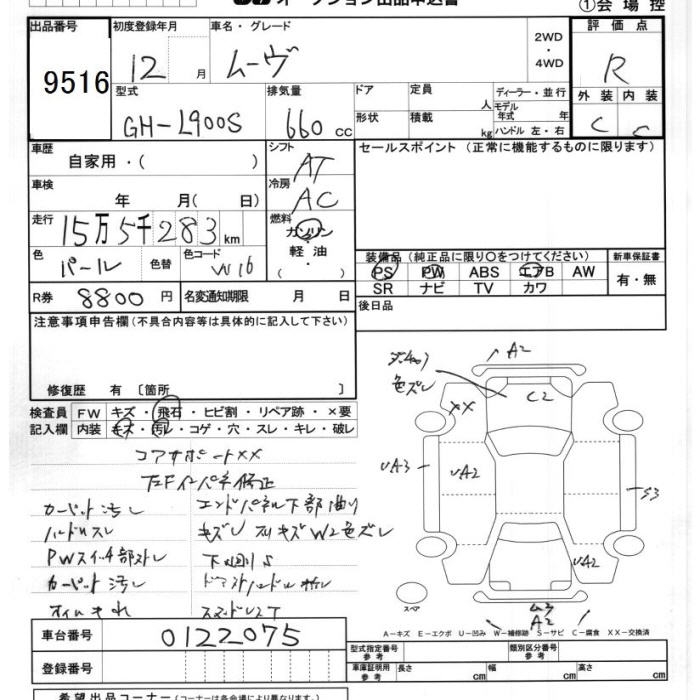 オークション出品申込書
①会場控
出品番号
9516
初度登録年月
12月
車名・グレード
ムーヴ
2WD
・
4WD
評価点
R
型式
GH-L900S
排気量
660cc
ドア
形状
定員
人
積載
kg
ディーラー・並行
モデル年式
年
ハンドル 左・右
外装 内装
C C
車歴
自家用・( )
シフト
AT
セールスポイント (正常に機能するものに限ります)
車検
年 月( 日)
冷房
AC
走行
15万5千283km
燃料
ガソリン
・
軽油
・
( )
色
パール
色替
色コード
W16
装備品 (純正品に限り○をつけてください)
PS PW ABS エアB AW
SR ナビ TV カワ
新車保証書
有・無
R券
8800円
名変通知期限
月 日
後日品
注意事項申告欄 (不具合内容等は具体的に記入して下さい)
修復歴 有 〔箇所 〕
検査員
記入欄
FW キズ・飛石・ヒビ割・リペア跡・×要
内装 キズ・汚れ・コゲ・穴・スレ・キレ・破レ
コアサポートXX
カーペット汚レ
エンドパネル下部曲り
ハンドルスレ
キズレ
キズ W2色ズレ
PWスイッチ部
カーペット汚レ
色ズレ
A2
C2
XX
UA3
UA2
S3
UA2
A2
スペア
A−キズ E−エクボ U−凹み W−補修跡 S−サビ C−腐食 XX−交換済
車台番号
0122075
登録番号
型式指定番号
参考
類別区分番号
参考
車庫証明用
参考
長さ cm
幅 cm
高さ cm
希望出品コーナー (コーナーは各会場により異なります)